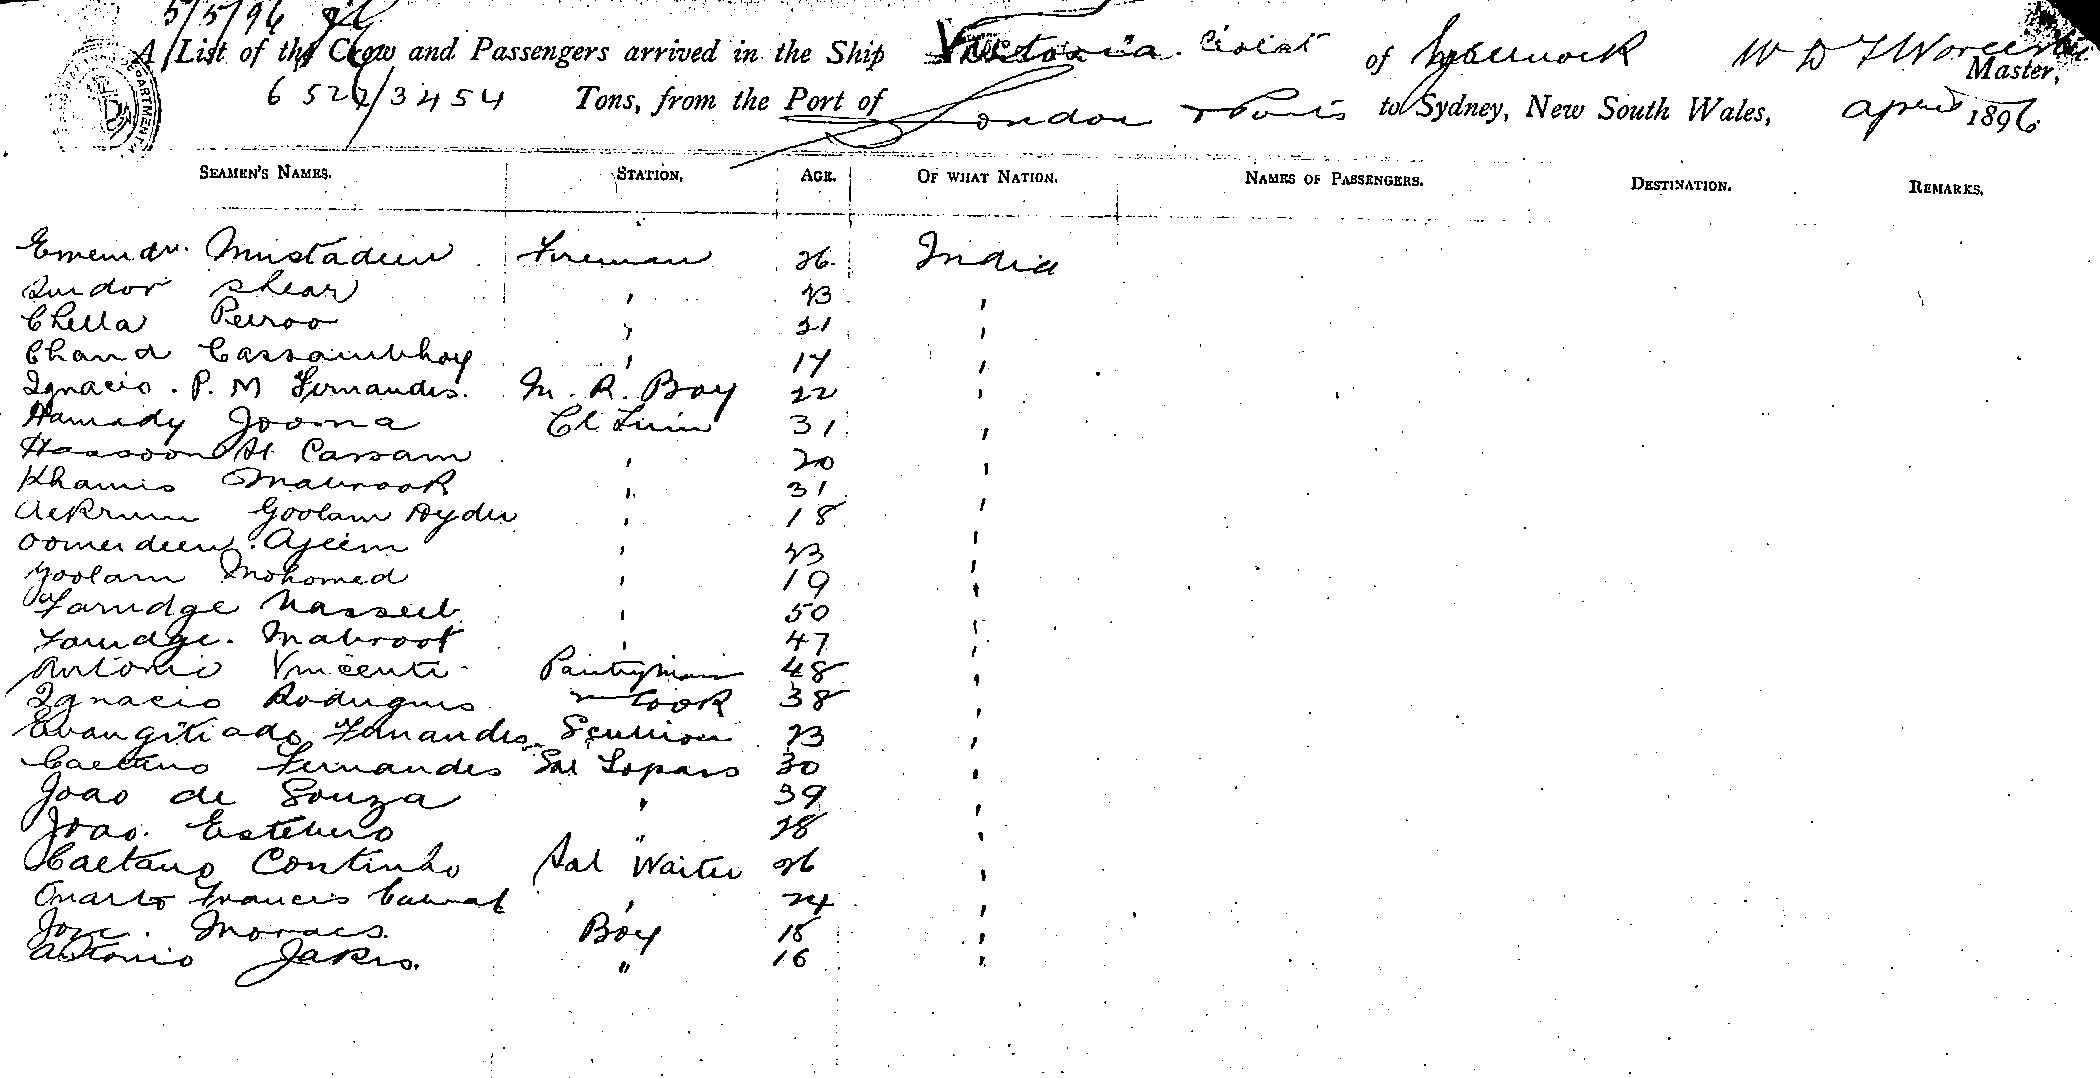 5/5/96
A List of the Crew and Passengers arrived in the Ship Victoria of Greenock W D G Worcester Master,
6 527/3454 Tons, from the Port of London & Ports to Sydney, New South Wales, April 1896
SEAMEN'S NAMES. STATION. AGE. OF WHAT NATION. NAMES OF PASSENGERS. DESTINATION. REMARKS.
Mustadeen Fireman 26 India
Shear " 23 "
Chella Peiroo " 21 "
Chand Cassambhoy " 17 "
Ignacio. P. M Fernandes. M. R. Boy 22 "
Hamady Jooma 31 "
Hassoon Cassam " 20 "
Khamis Mabrook " 31 "
Goolam Hyder " 18 "
Oomerdeen. Ajeem " 23 "
Goolam Mohomed " 19 "
Farudge Nasseeb " 50 "
Farudge. Mabrook " 47 "
Antonio Vincente Pantryman 48 "
Ignacio Rodrigues Cook 38 "
Fernandes Scullion 23 "
Caetano Fernandes 30 "
Joao de Souza " 39 "
Joao. Estebeiro " 28 "
Caetano Continho Sal Waiter 26 "
Francis " 24 "
Jose. Moraes. Boy 18 "
Antonio " 16 "